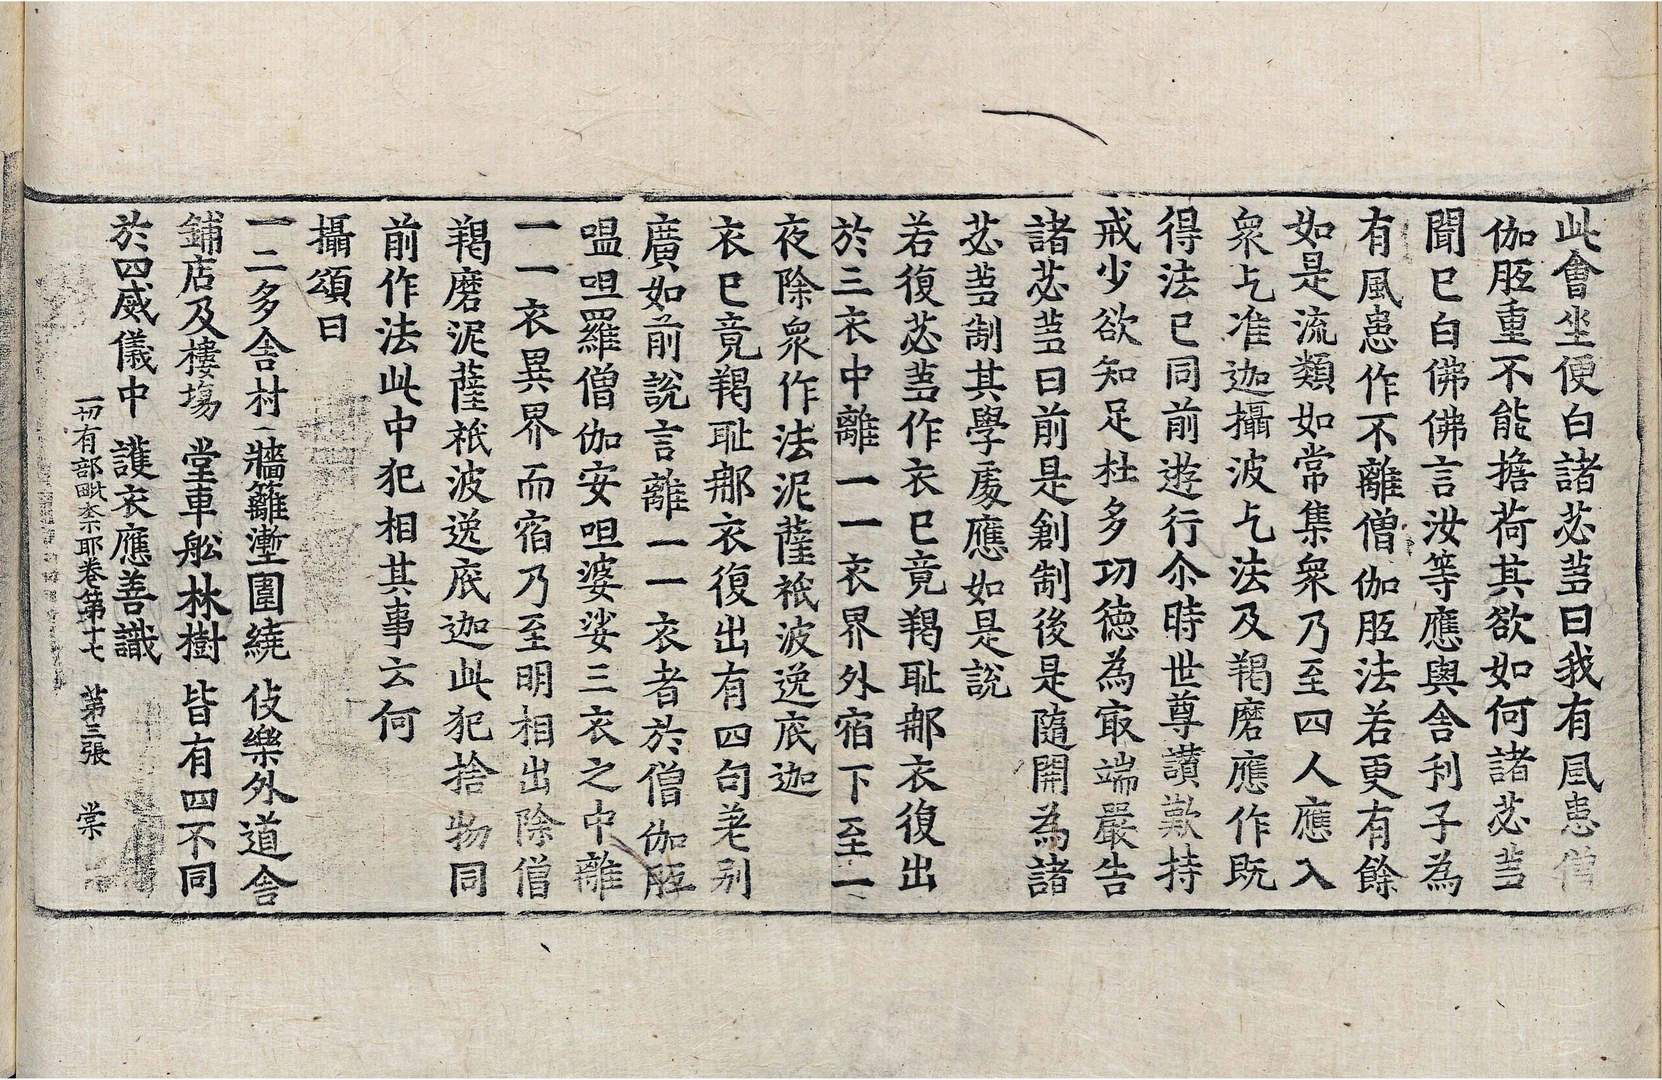 此會坐便白諸苾蒭曰我有風患僧
伽胝重不能擔荷其欲如何諸苾蒭
聞已白佛佛言汝等應與舍利子為
有風患作不離僧伽胝法若更有餘
如是流類如常集衆乃至四人應入
衆乞准迦攝波乞法及羯磨應作既
得法已同前遊行尒時世尊讃歎持
戒少欲知足杜多功德為㝡端嚴告
諸苾蒭曰前是創制後是隨開為諸
苾蒭制其學處應如是說
若復苾蒭作衣已竟羯耻那衣復出
於三衣中離一一衣界外宿下至一
夜除衆作法泥薩祇波逸底迦
衣已竟羯耻那衣復出有四句差别
廣如前說言離一一衣者於僧伽胝
嗢呾羅僧伽安呾婆娑三衣之中離
一一衣異界而宿乃至明相出除僧
羯磨泥薩祇波逸底迦此犯捨物同
前作法此中犯相其事云何
攝頌曰
一二多舍村 牆籬塹圍繞 伎樂外道舍
鋪店及樓塲 堂車舩林樹 皆有四不同
於四威儀中 護衣應善識
一切有部毗奈耶卷第十七 第三張 棠